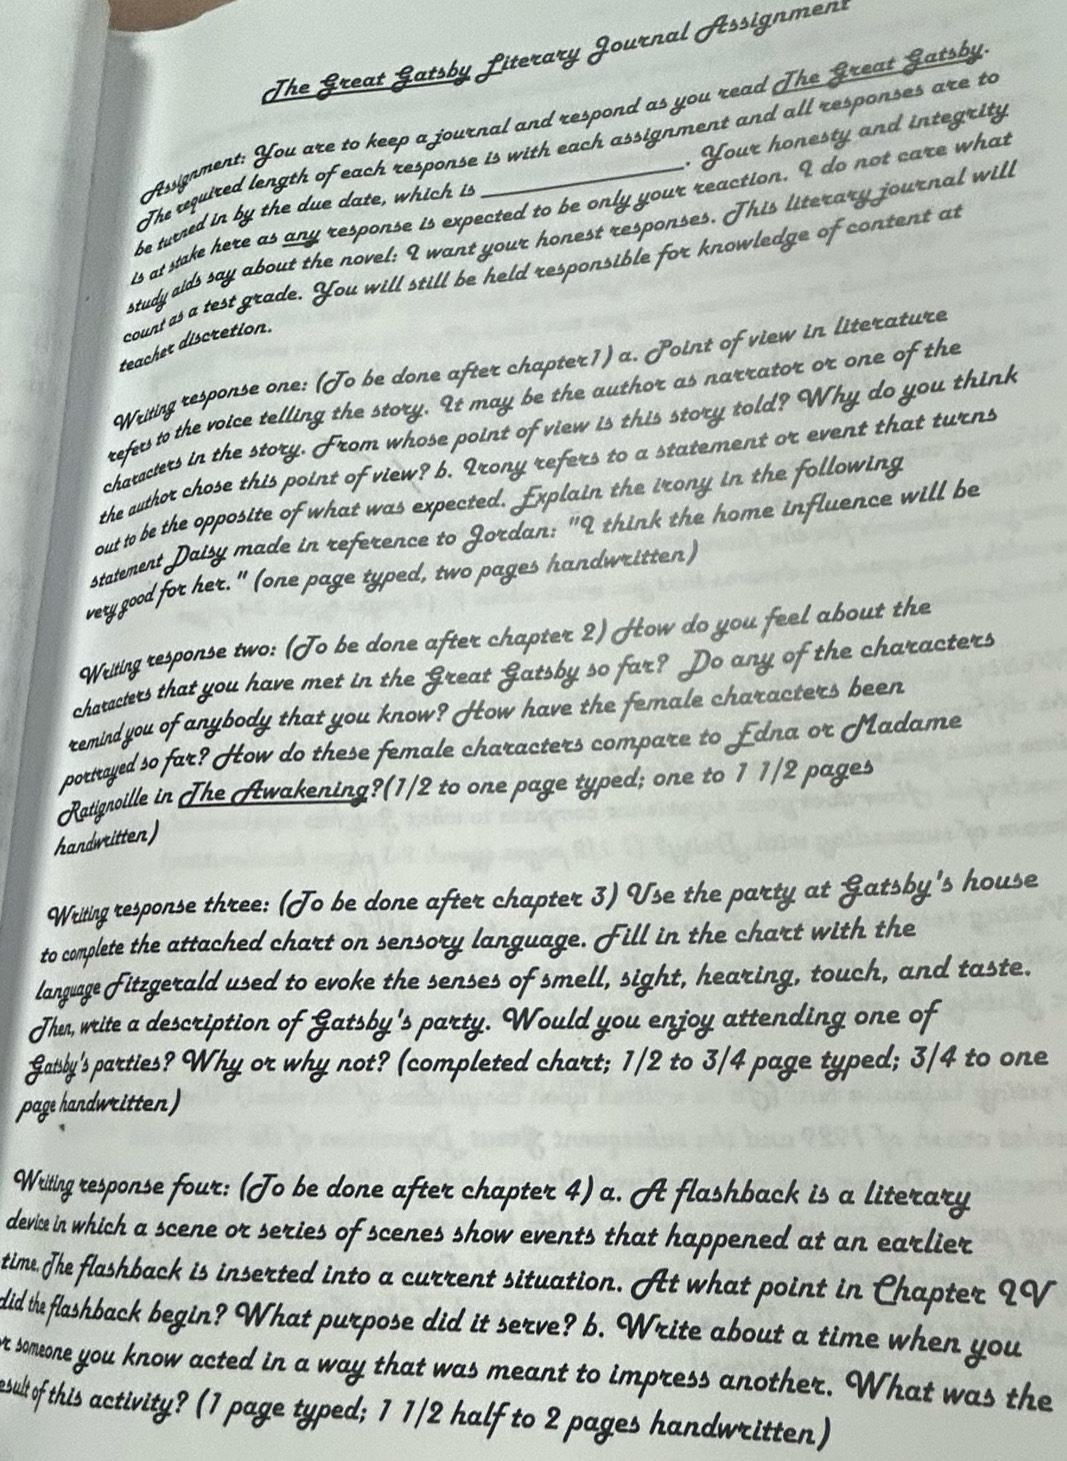 The Great Gatsby Literary Journal Assignment
Assignment: You are to keep a journal and respond as you read The Great Gatsby.
The required length of each response is with each assignment and all responses are to
be turned in by the due date, which is ____________. Your honesty and integrity
is at stake here as any response is expected to be only your reaction. I do not care what
study aids say about the novel: I want your honest responses. This literary journal will
count as a test grade. You will still be held responsible for knowledge of content at
teacher discretion.
Writing response one: (To be done after chapter1) a. Point of view in literature
refers to the voice telling the story. It may be the author as narrator or one of the
characters in the story. From whose point of view is this story told? Why do you think
the author chose this point of view? b. Irony refers to a statement or event that turns
out to be the opposite of what was expected. Explain the irony in the following
statement Daisy made in reference to Jordan: "I think the home influence will be
very good for her." (one page typed, two pages handwritten)
Writing response two: (To be done after chapter 2) How do you feel about the
characters that you have met in the Great Gatsby so far? Do any of the characters
remind you of anybody that you know? How have the female characters been
portrayed so far? How do these female characters compare to Edna or Madame
Ratignoille in The Awakening?(1/2 to one page typed; one to 1 1/2 pages
handwritten)
Writing response three: (To be done after chapter 3) Use the party at Gatsby's house
to complete the attached chart on sensory language. Fill in the chart with the
language Fitzgerald used to evoke the senses of smell, sight, hearing, touch, and taste.
Then, write a description of Gatsby's party. Would you enjoy attending one of
Gatsby's parties? Why or why not? (completed chart; 1/2 to 3/4 page typed; 3/4 to one
page handwritten)
Writing response four: (To be done after chapter 4) a. A flashback is a literary
device in which a scene or series of scenes show events that happened at an earlier
time. The flashback is inserted into a current situation. At what point in Chapter IV
did the flashback begin? What purpose did it serve? b. Write about a time when you
or someone you know acted in a way that was meant to impress another. What was the
result of this activity? (1 page typed; 1 1/2 half to 2 pages handwritten)